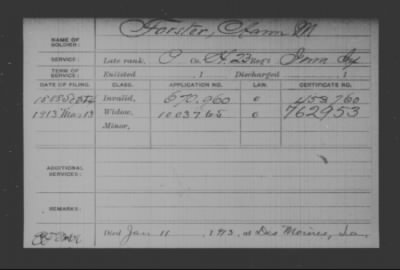 NAME OF SOLDIER: Forster, M
SERVICE: Late rank, Co. H, 23 Reg't Iowa Inf
TERM OF SERVICE: Enlisted , 1 Discharged , 1
DATE OF FILING. CLASS. APPLICATION NO. LAW. CERTIFICATE NO.
Invalid, 670,960 453,760
1913 Mar 13 Widow, 1003765 762953
Minor,
ADDITIONAL SERVICES:
REMARKS:
Died Jan 11, 1913, at Des Moines, Ia.